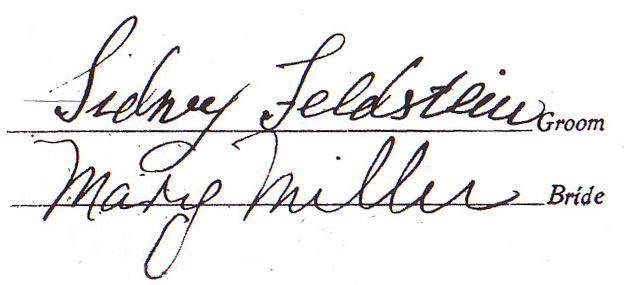 Sidney Feldstein Groom
Mary Miller Bride